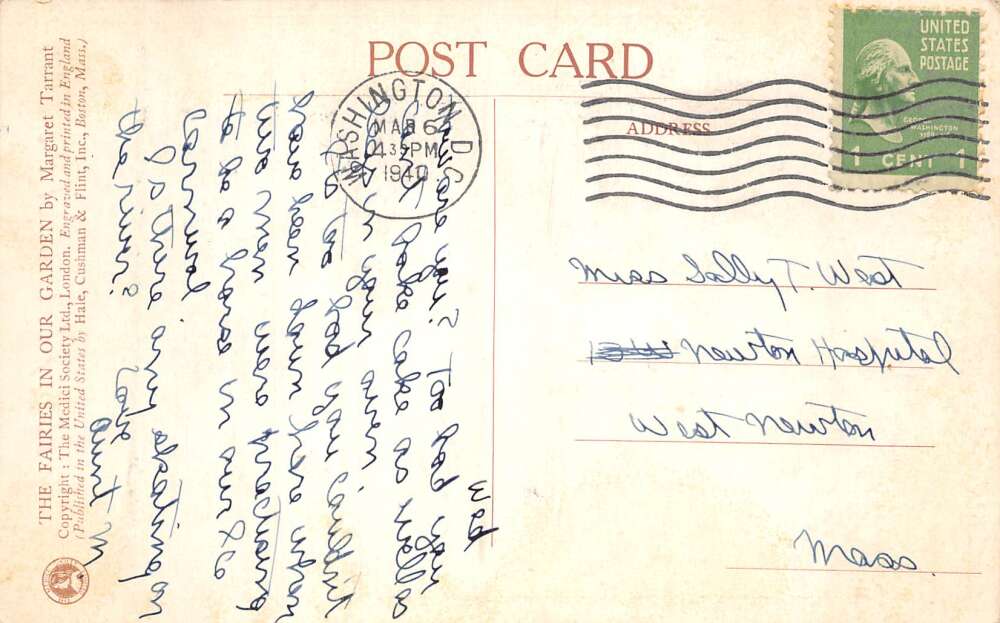 POST CARD
ADDRESS
UNITED
STATES
POSTAGE
GEORGE
WASHINGTON
1 CENT 1
WASHINGTON, D.C.
MAR 6
4 30 PM
1940
Miss Sally T. West
Newton Hospital
West Newton
Mass.
Wed
How are you? Too bad you
can't bake cake as well as
in your oven.
too bad you couldn't
have been down here when
two men were practising
to be a horse in our
Carnival
Is there any skating on
the river?
Love
Aunt M.
THE FAIRIES IN OUR GARDEN by Margaret Tarrant
Copyright : The Medici Society Ltd., London. Engraved and printed in England
(Published in the United States by Hale, Cushman & Flint, Inc., Boston, Mass.)